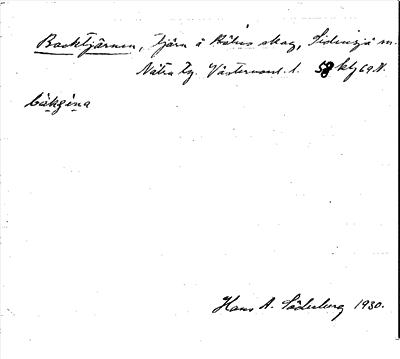 Backtjärnen, tjärn å Näs skog, Sidensjö sn.
Nätra tg. Västernorrl. l. 58 kbl 69 N.
bäkʒena
Hans A. Söderberg 1930.